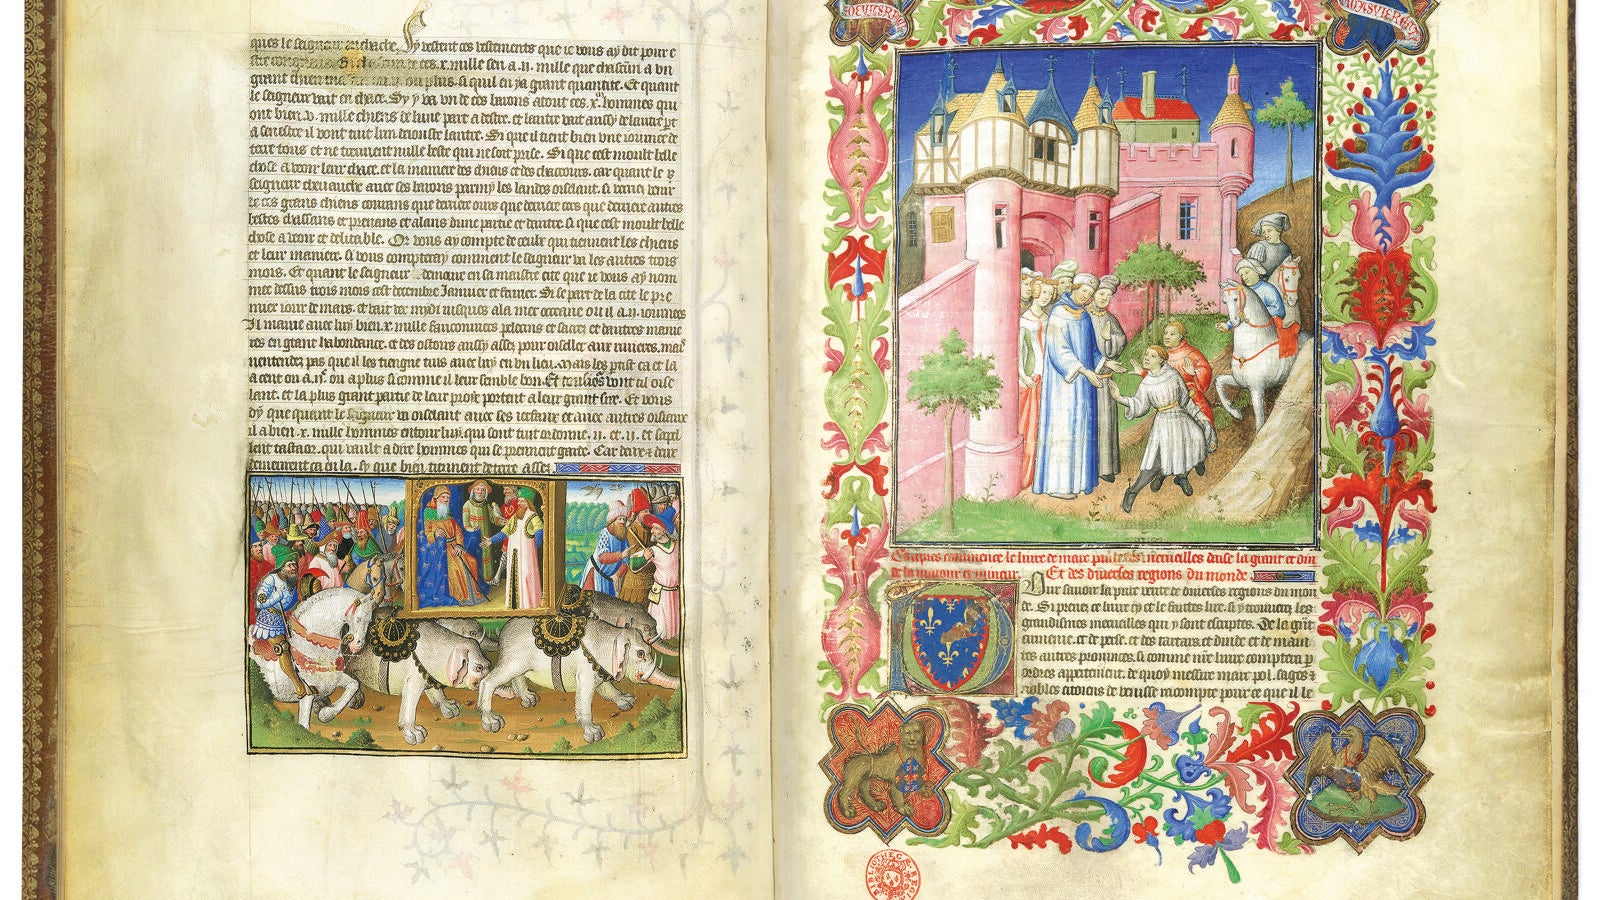 ques le seigneur en chache. Sy restent ces vestements que ie vous ay dit pour e
stre
grant chien ou plus. si quil en ya grant quantite. Et quant
le seigneur vait en chace. Sy y va vn de ces barons atout ces .x. hommes qui
ont bien .v. mille chiens de lune part a destre. et lautre vait aussy de lautre pt
a senestre il vont tuit lun de iouste lautre. Si que il tient bien vne iournee de
terre tous et ne treuuent mille beste qui ne soit prise. Si que cest moult belle
chose a veoir leur chace. et la maniere des chiens et des chaceours. car quant le
seigneur cheuauche auec ses barons parmy les landes oiselant. si verrez venir
de ces grans chiens courans que derriere ours que derriere cers que derriere autres
bestes chassans et prenans et alans dune partie et dautre. si que cest moult belle
chose a veoir et delitable. Or vous ay compte de ceulx qui tiennent les chiens
et leur maniere. si vous compteray comment le seigneur va les autres trois
mois. Et quant le seigneur demoure en sa maistre cite que ie vous ay nom
mee dessus trois mois cest decembre Januier et feurier. Si se part de la cite le pre
mier iour de mars. et vait vers mydi iusques a la mer occeane ou il a .ii. iournees
Il maine auec luy bien .x. mille fauconniers pelerins et sacres et dautres manie
res en grant habondance. et des ostours aussy assez pour oiseller aux riuieres. mais
nentendez pas que il les tiengne tuis auec luy en vn lieu. Mais les part ca et la
a cent ou a .ii.c ou a plus si comme il leur semble bon. Et tousiours vont il oise
lant. et la plus grant partie de leur proie portent a leur grant sire. Et vous
dy que quant le seigneur va oiselant auec ses et auec autres oiseaux
il a bien .x. mille hommes entour luy. qui sont tuit ordonne .ii. et .ii. et sapel
lent tastaor. qui vault a dire hommes qui se prennent garde. Car deux et deux
demeurent ca en la. sy que bien tiennent de terre assez
Cy apres commence le liure de marc paul et des merueilles daise la grant et dinde
de la maiour et mineur. Et des diuerses regions du monde
Pour sauoir la pure verite de diuerses regions du mon
de. Si prenez ce liure cy et le faittes lire. si y trouuerez les
grandismes merueilles qui y sont escriptes. De la grant
ermenie. et de perse. et des tartars. et dinde. et de main
tes autres prouinces. si comme nostre liure comptera par
ordres appertement. de quoy messire marc pol. sages et
nobles citoiens de venisse racompte pour ce que il le